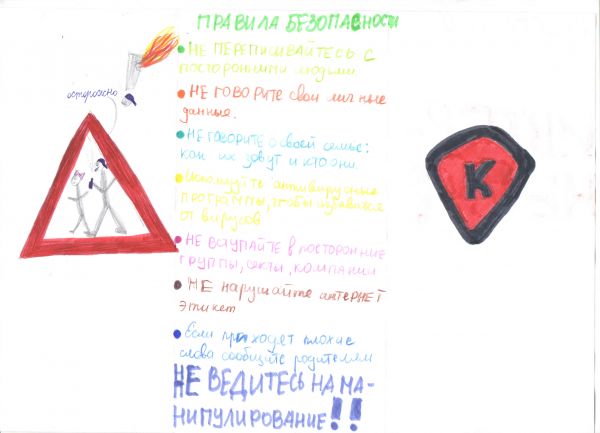 ПРАВИЛА БЕЗОПАСНОСТИ
НЕ ПЕРЕПИСЫВАЙТЕСЬ С
посторонними людьми
осторожно
НЕ ГОВОРИТЕ свои личные
данные.
НЕ ГОВОРИТЕ о своей семье:
как их зовут и кто они
Используйте антивирусные
программы, чтобы избавится
от вирусов
НЕ вступайте в посторонние
группы, секты, компании
НЕ нарушайте интернет
этикет
Если приходят плохие
слова сообщите родителям
НЕ ВЕДИТЕСЬ НА МА-
НИПУЛИРОВАНИЕ!!
К